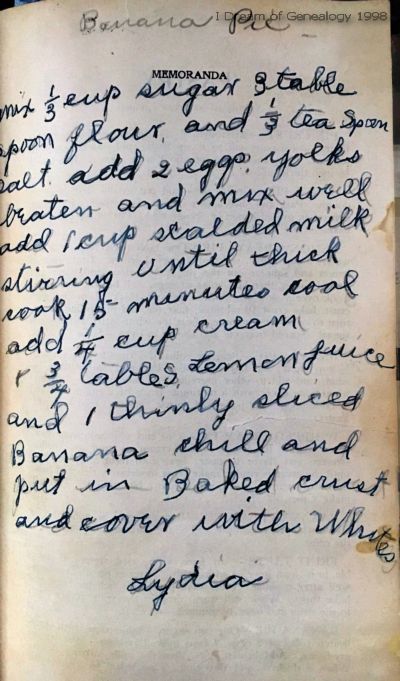 I Dream of Genealogy 1998
Banana Pie
MEMORANDA
mix 1/3 cup sugar 3 table
spoon flour, and 1/3 tea spoon
salt. add 2 eggs, yolks
beaten and mix well
add 1 cup scalded milk
stirring until thick
cook 15 minutes cool
add 1/4 cup cream
3/4 tables, Lemon juice
and 1 thinly sliced
Banana chill and
put in Baked crust
and cover with Whites
Lydia